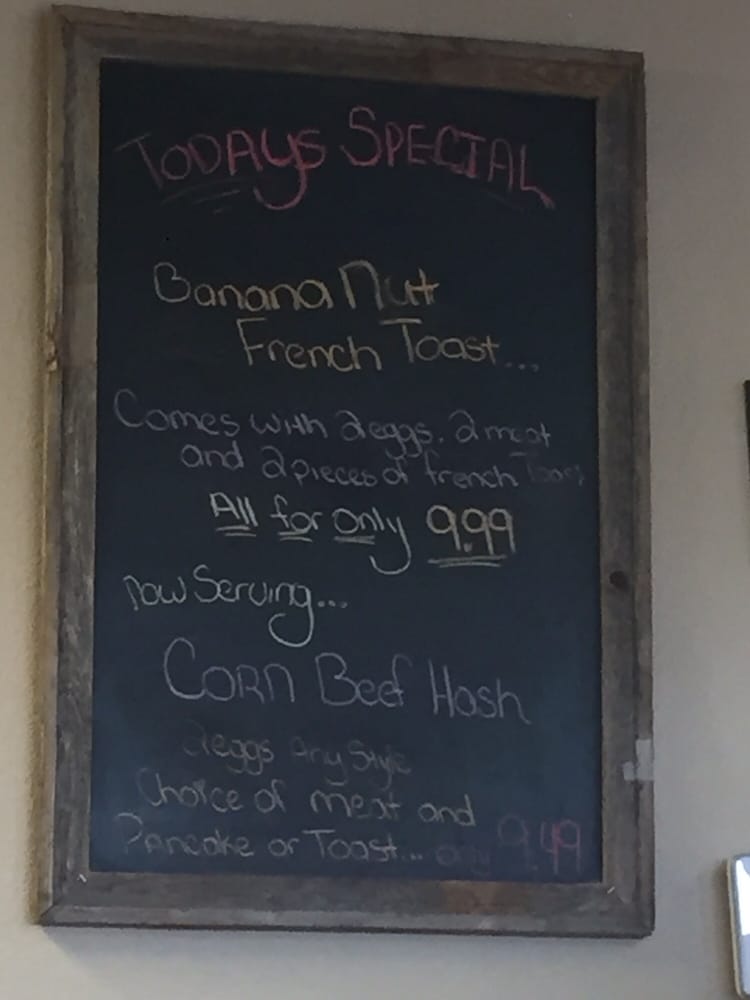 TODAYS SPECIAL
Banana Nutt
French Toast...
Comes with 2 eggs. 2 meat
and 2 pieces of french Toast
All for only 9.99
now Serving...
CORN Beef Hash
2 eggs Any Style
Choice of meat and
Pancake or Toast... only 9.49